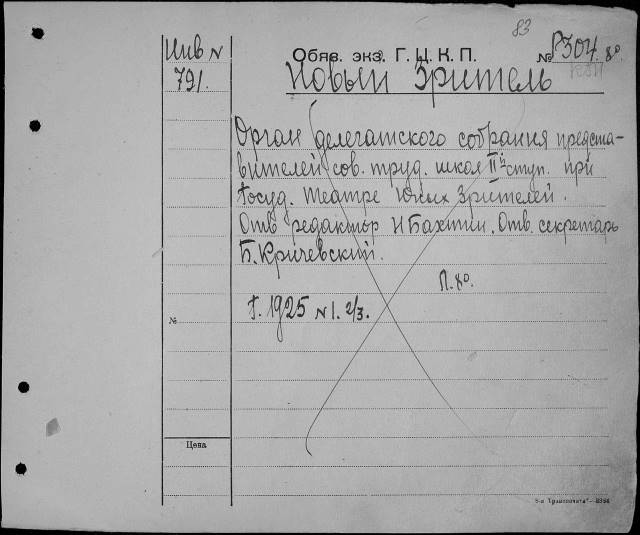 83
Инв N
791.
Обяв. экз. Г. Ц. К. П.
№ Р304. 8°.
Новый Зритель
Орган делегатского собрания предста-
вителей сов. труд. школ IIй ступ. при
Госуд. Театре Юных Зрителей.
Отв. редактор Н Бахтин. Отв. секретарь
Б. Кричевский.
Л. 8°.
Г. 1925 N 1. 2/3.
№
Цена